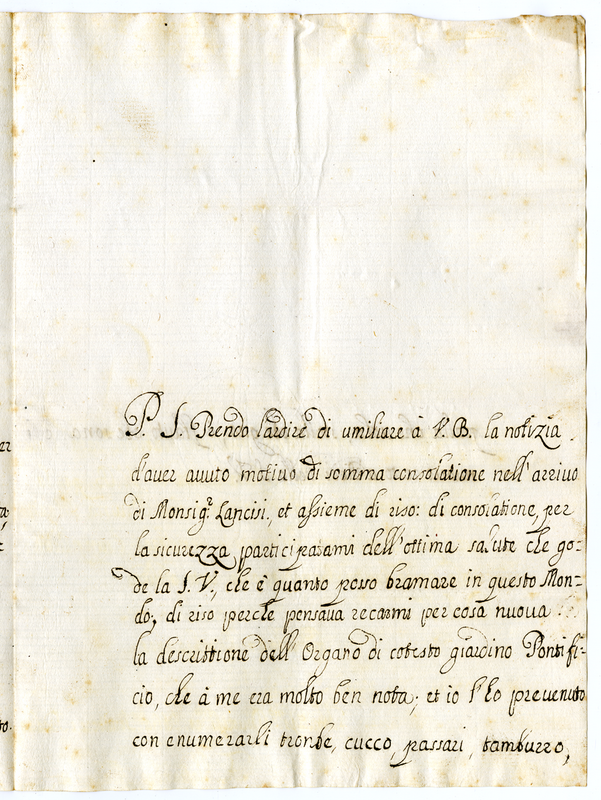 P. S. Prendo l'ardire di umiliare à V. B. la notizia
d'aver avuto motivo di somma consolatione nell'arrivo
di Monsig.r Lancisi, et assieme di riso: di consolatione, per
la sicurezza participatami dell'ottima salute che go=
de la S. V., che è quanto posso bramare in questo Mon=
do; di riso perche pensava recarmi per cosa nuova
la descrittione dell'Organo di cotesto giardino Pontifi=
cio, che à me era molto ben nota; et io l'ho prevenuto
con enumerarli trombe, cucco, passari, tamburro,